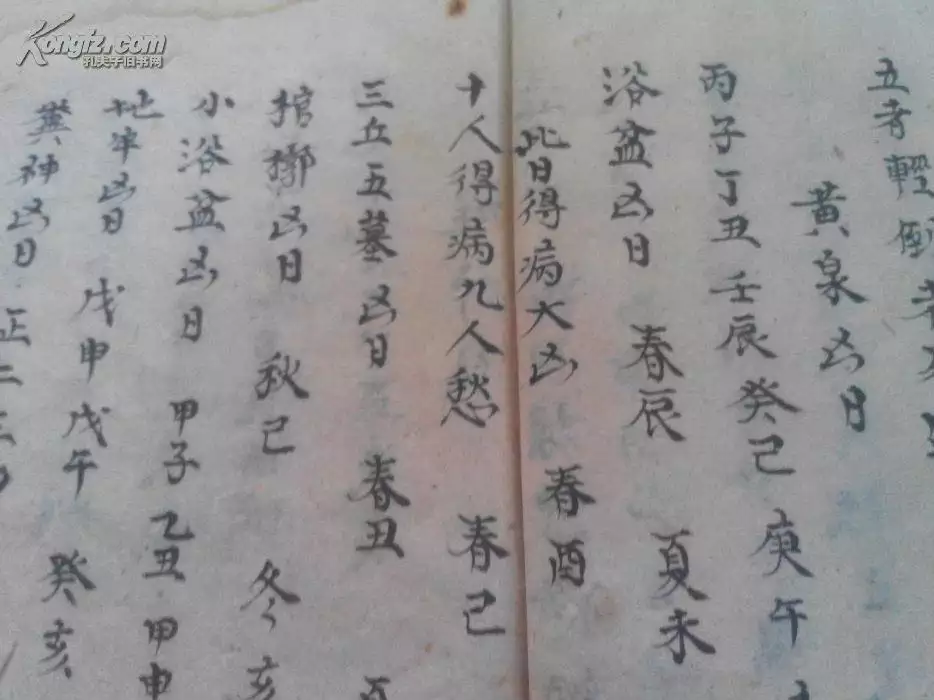 Kongfz.com
孔夫子旧书网
五者輕
黃泉凶日
丙子丁丑壬辰癸巳庚午
浴盆凶日 春辰 夏未
此日得病大凶 春酉
十人得病九人愁 春巳
三丘五墓凶日 春丑
棺槨凶日 秋巳 冬亥
小浴盆凶日 甲子乙丑甲申
凶日 戊申戊午癸亥
神凶日 正二三